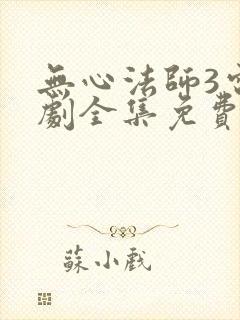 無心法師3電
劇全集免費
蘇小戲